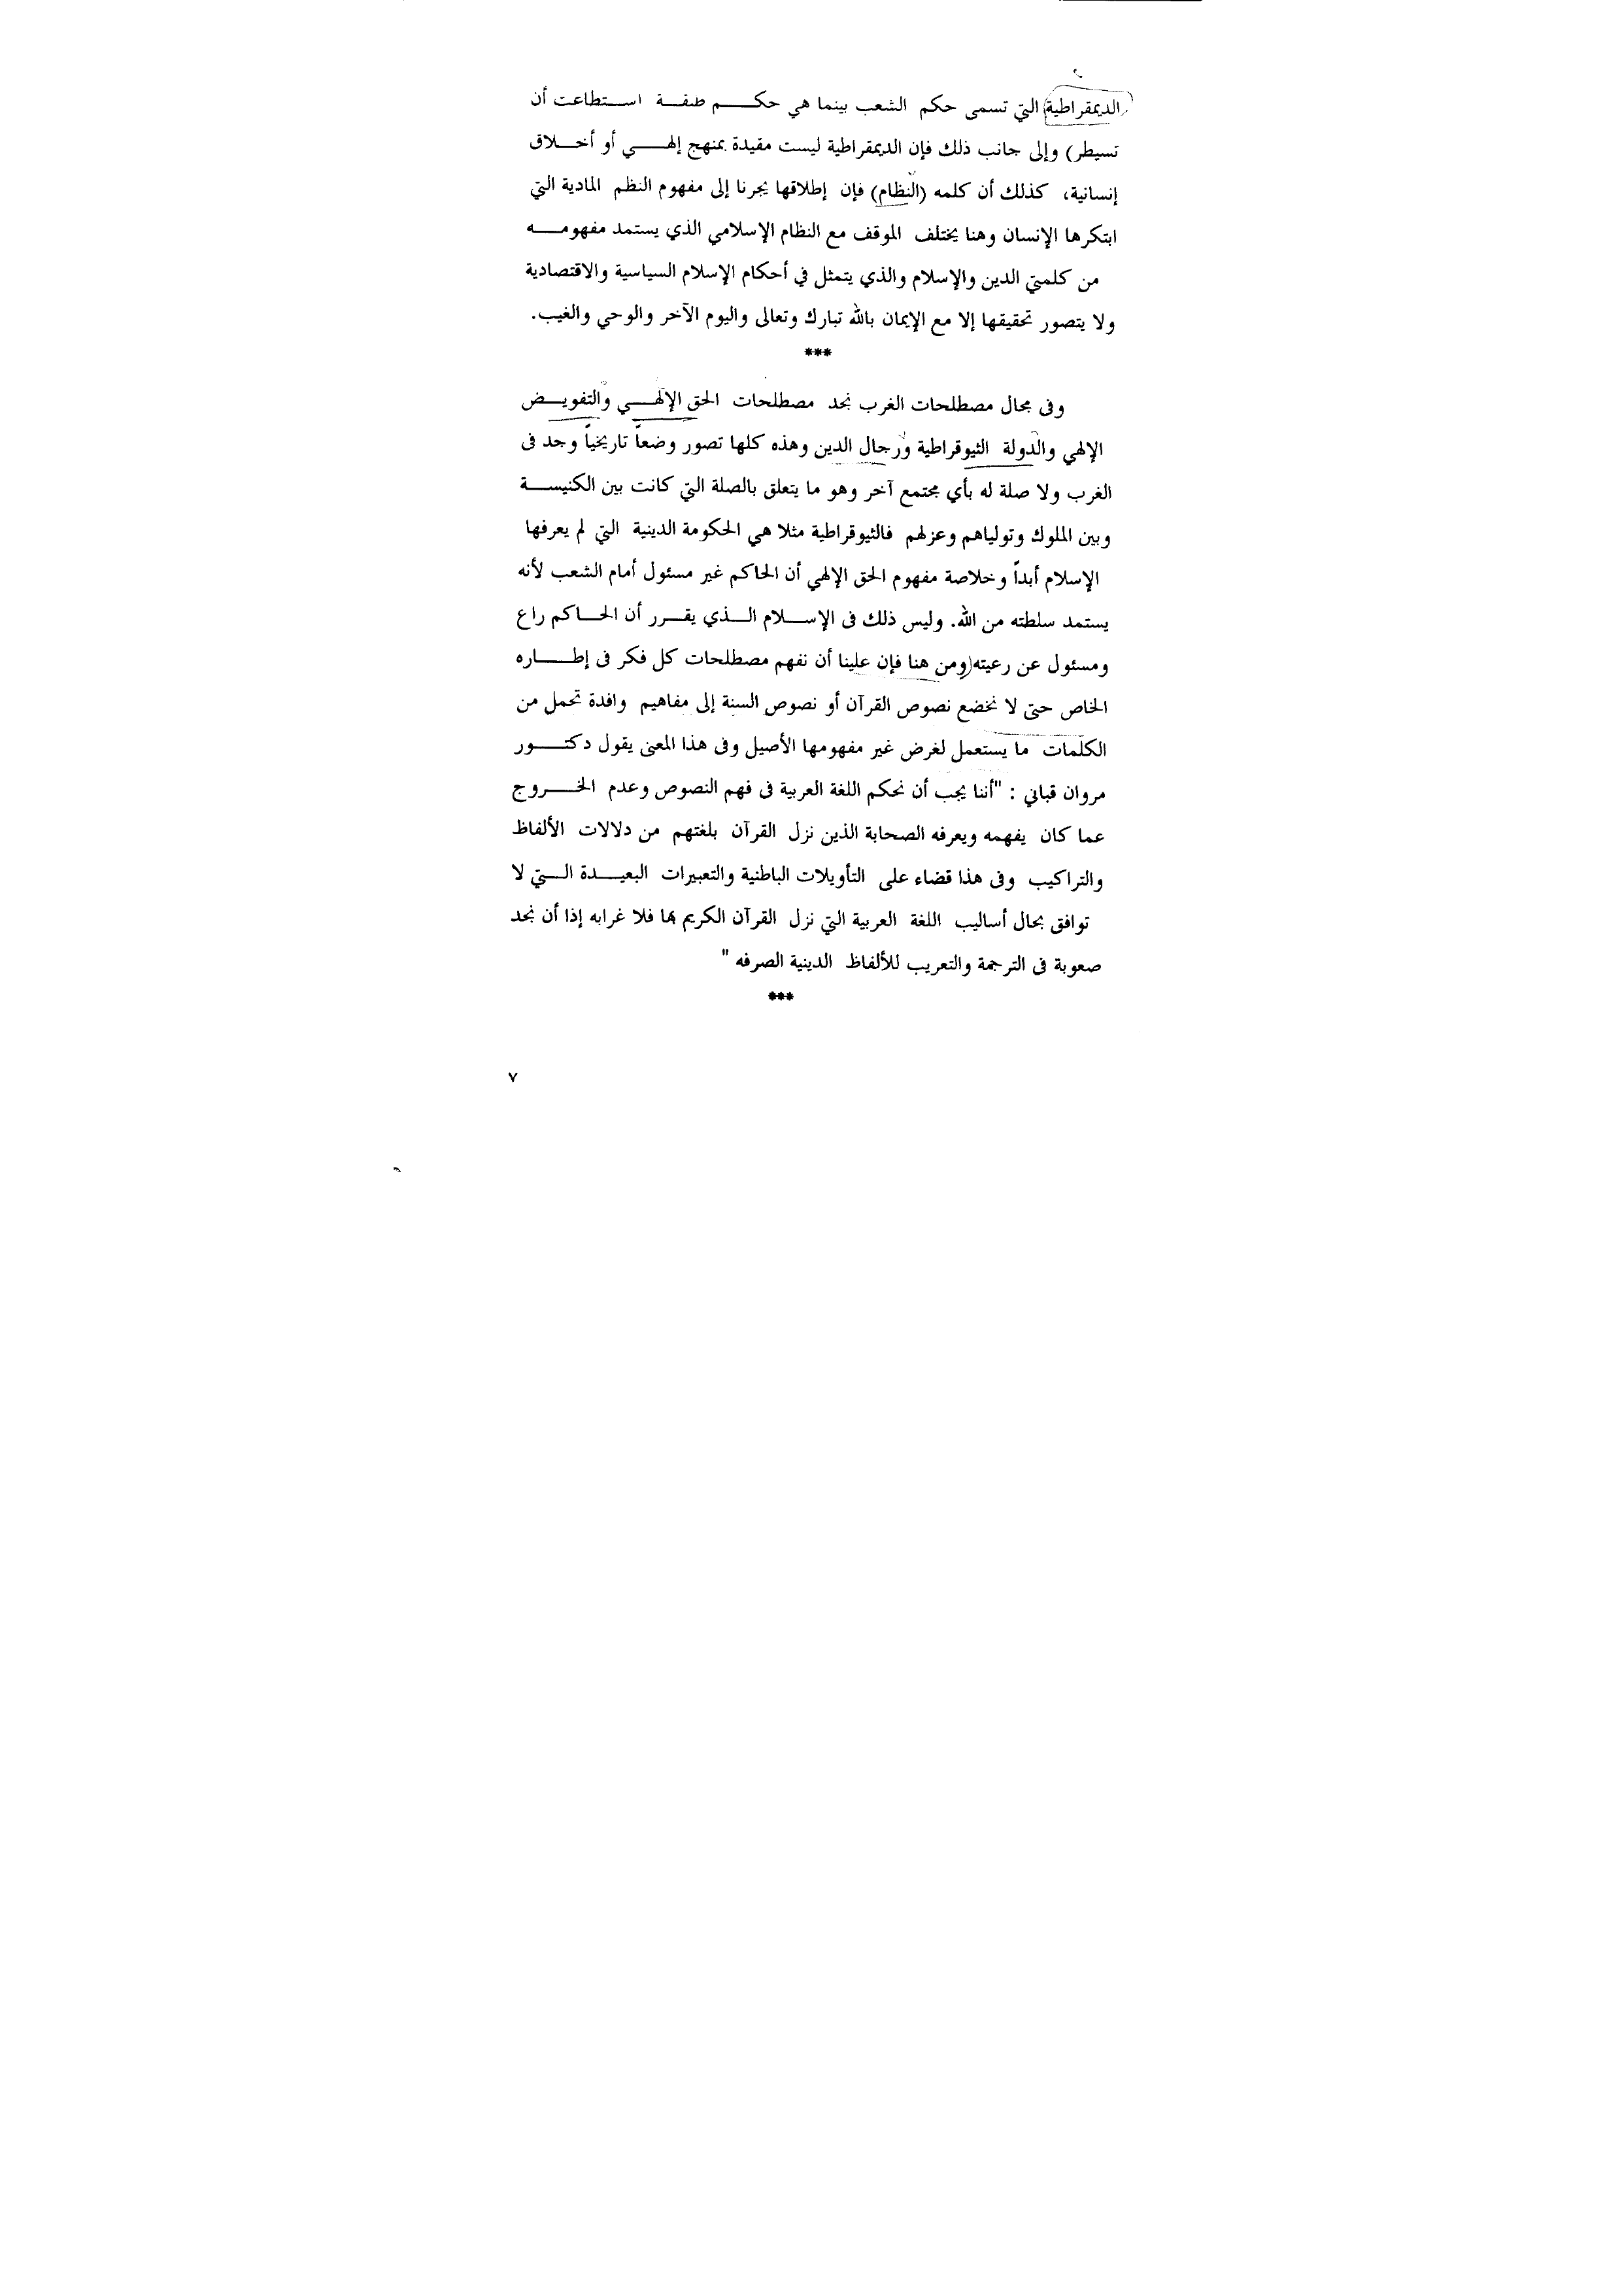 الديمقراطية) التي تسمى حكم الشعب بينما هي حكم طبقة استطاعت أن
تسيطر) وإلى جانب ذلك فإن الديمقراطية ليست مقيدة بمنهج إلهي أو أخلاق
إنسانية، كذلك أن كلمه (النظام) فإن إطلاقها يجرنا إلى مفهوم النظم المادية التي
ابتكرها الإنسان وهنا يختلف الموقف مع النظام الإسلامي الذي يستمد مفهومه
من كلمتي الدين والإسلام والذي يتمثل في أحكام الإسلام السياسية والاقتصادية
ولا يتصور تحقيقها إلا مع الإيمان بالله تبارك وتعالى واليوم الآخر والوحي والغيب.
***
وفى مجال مصطلحات الغرب نجد مصطلحات الحق الإلهي والتفويض
الإلهي والدولة الثيوقراطية ورجال الدين وهذه كلها تصور وضعاً تاريخياً وجد فى
الغرب ولا صلة له بأي مجتمع آخر وهو ما يتعلق بالصلة التي كانت بين الكنيسة
وبين الملوك وتولياهم وعزلهم فالثيوقراطية مثلا هي الحكومة الدينية التي لم يعرفها
الإسلام أبداً وخلاصة مفهوم الحق الإلهي أن الحاكم غير مسئول أمام الشعب لأنه
يستمد سلطته من الله. وليس ذلك فى الإسلام الذي يقرر أن الحاكم راع
ومسئول عن رعيته(ومن هنا فإن علينا أن نفهم مصطلحات كل فكر فى إطاره
الخاص حتى لا نخضع نصوص القرآن أو نصوص السنة إلى مفاهيم وافدة تحمل من
الكلمات ما يستعمل لغرض غير مفهومها الأصيل وفى هذا المعنى يقول دكتور
مروان قباني : "أننا يجب أن نحكم اللغة العربية فى فهم النصوص وعدم الخروج
عما كان يفهمه ويعرفه الصحابة الذين نزل القرآن بلغتهم من دلالات الألفاظ
والتراكيب وفى هذا قضاء على التأويلات الباطنية والتعبيرات البعيدة التي لا
توافق بحال أساليب اللغة العربية التي نزل القرآن الكريم بها فلا غرابه إذا أن نجد
صعوبة فى الترجمة والتعريب للألفاظ الدينية الصرفه "
***
٧